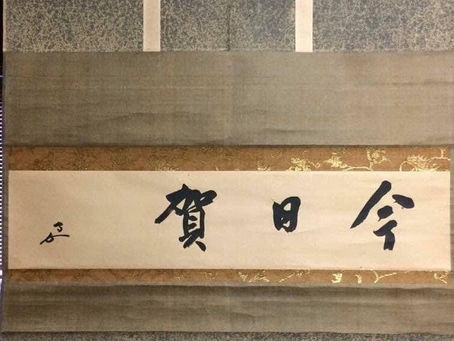 今日賀